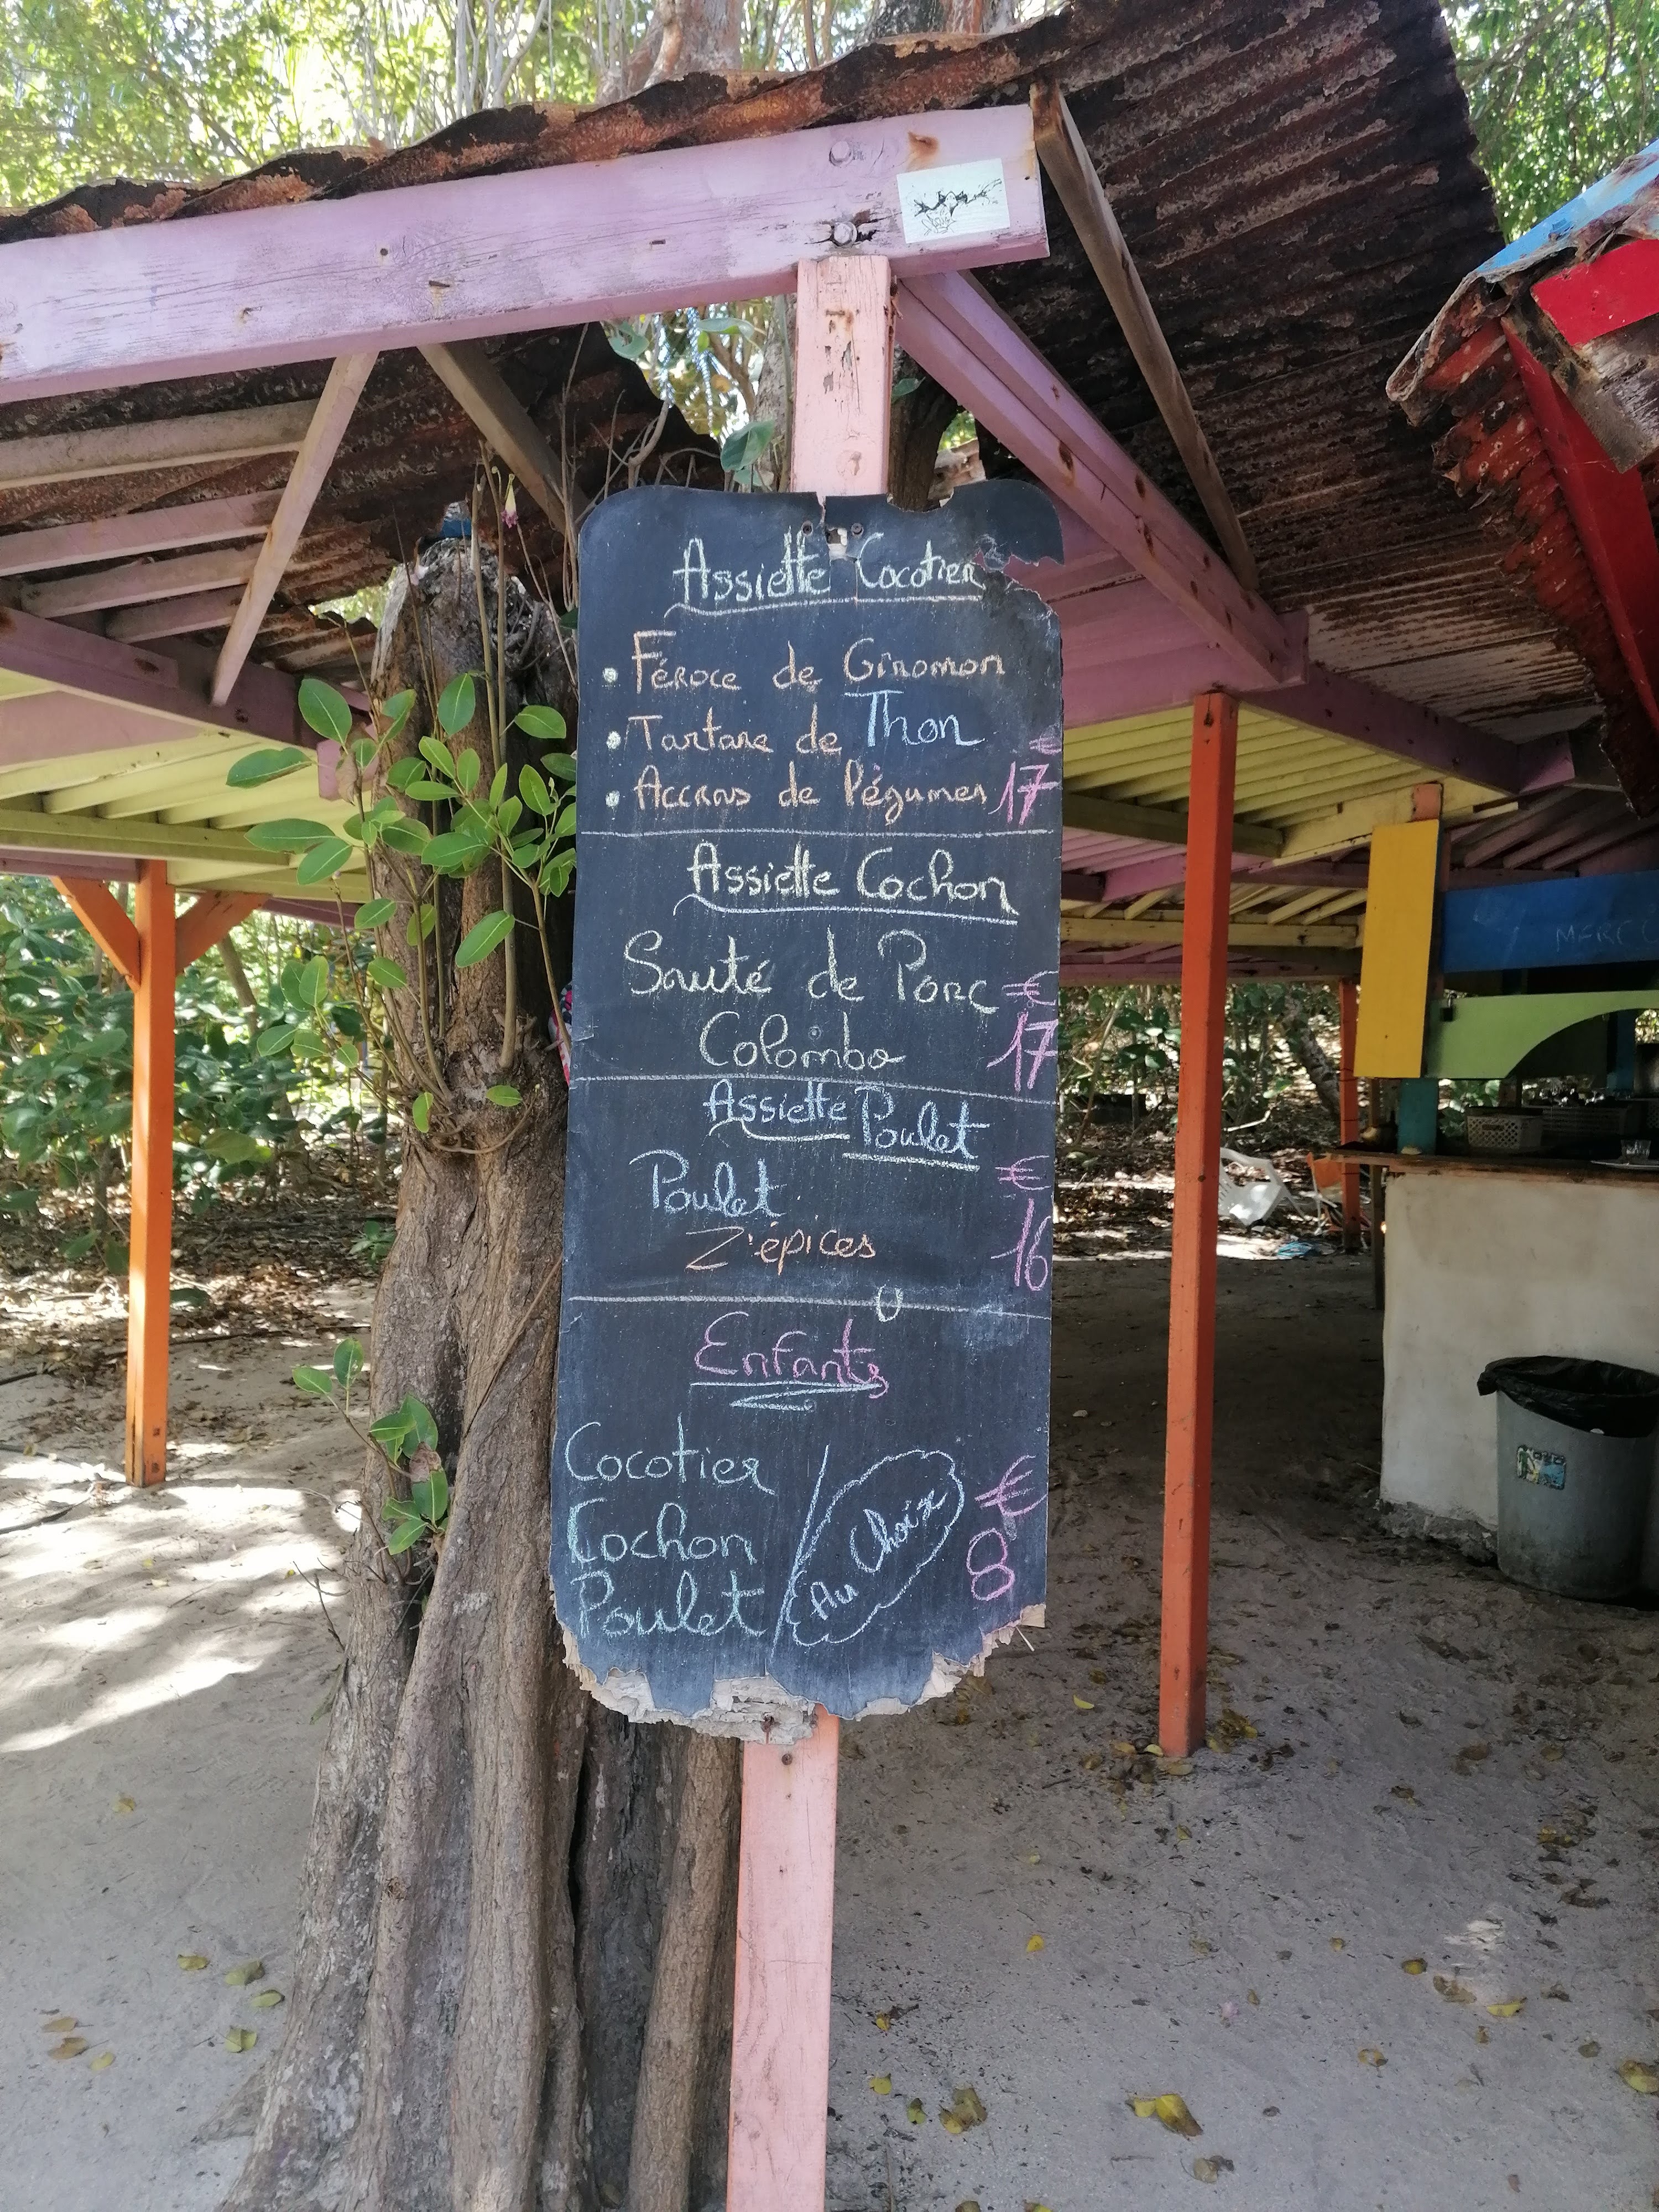 Assiette Cocotier
• Féroce de Giromon
• Tartare de Thon
• Accras de Légumes
€
17
Assiette Cochon
Sauté de Porc
Colombo
€
17
Assiette Poulet
Poulet
Z'épices
€
16
Enfants
Cocotier
Cochon
Poulet
/ Au Choix
€
8
MERC